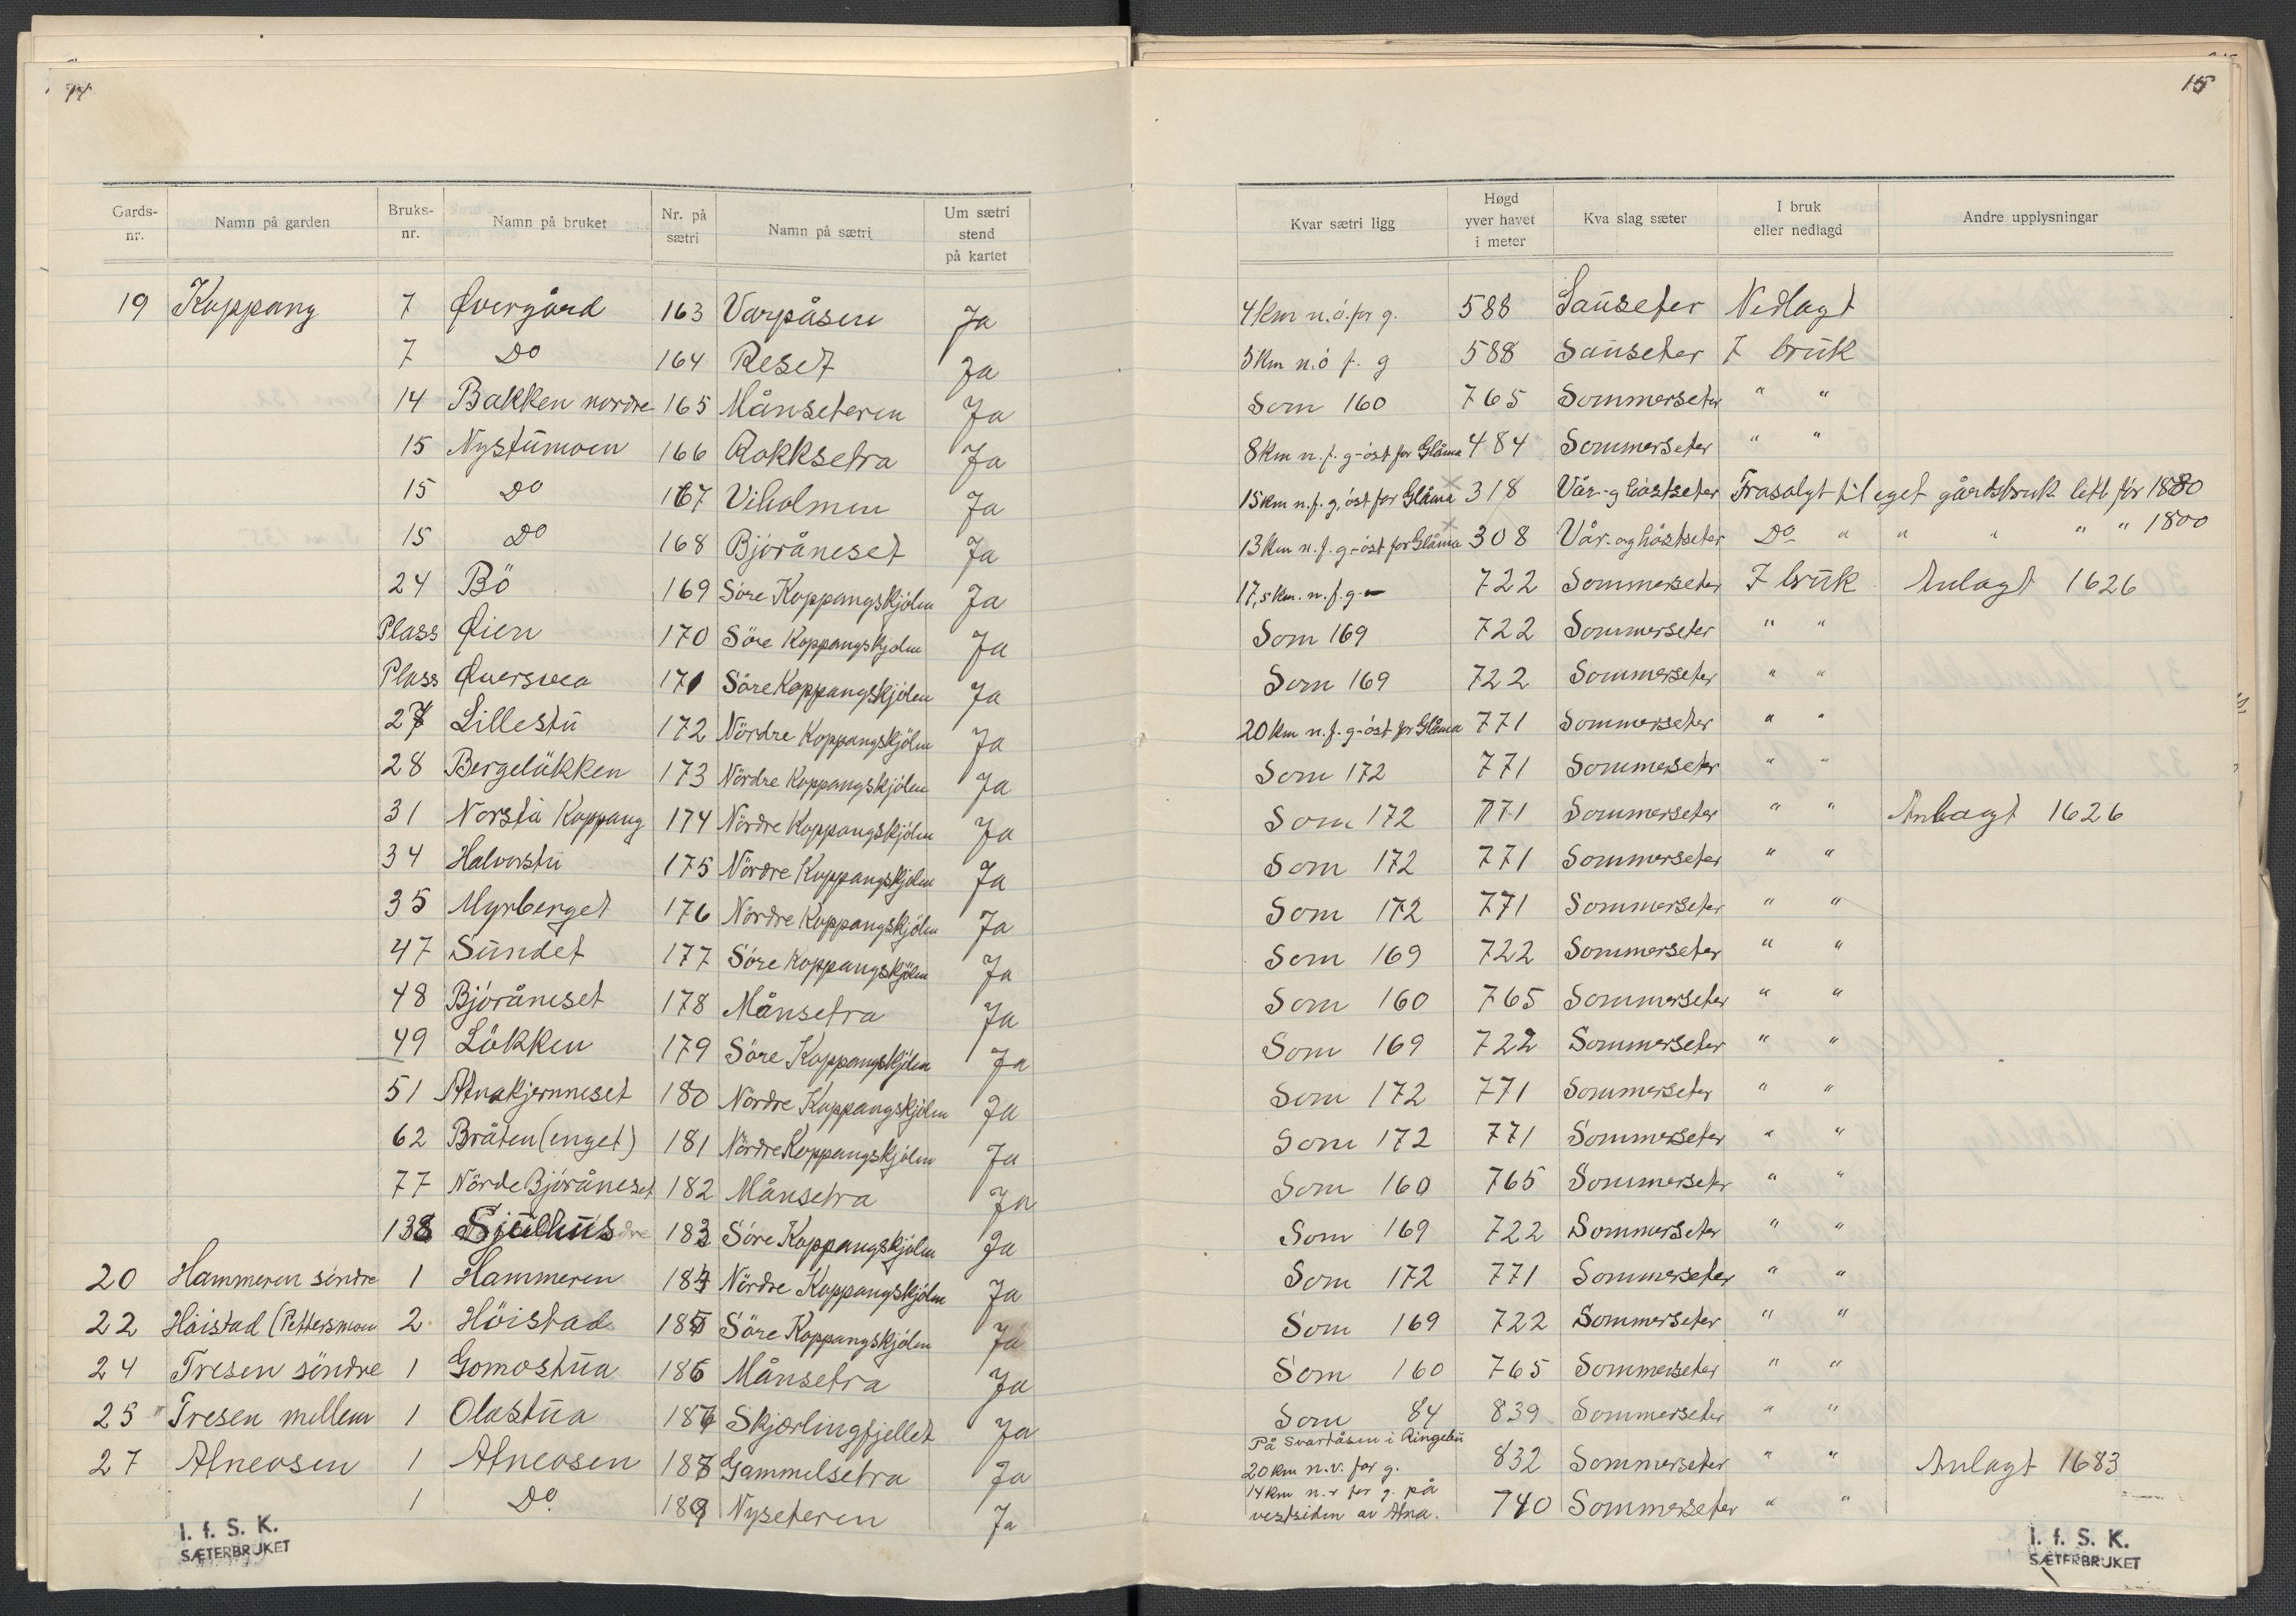 14
Gards-nr. Namn på garden Bruks-nr. Namn på bruket Nr. på sætri Namn på sætri Um sætri stend på kartet
19 Koppang 7 Øvergård 163 Varpåsen Ja
7 Do 164 Reset Ja
14 Bakken nordre 165 Månseteren Ja
15 Nystumoen 166 Rokksetra Ja
15 Do 167 Viholmen Ja
15 Do 168 Bjøråneset Ja
24 Bö 169 Söre Koppangskjölen Ja
Plass Øien 170 Söre Koppangskjölen Ja
Plass Øversvea 171 Söre Koppangskjölen Ja
27 Lillestu 172 Nördre Koppangskjölen Ja
28 Bergelökken 173 Nördre Koppangskjölen Ja
31 Norstu Koppang 174 Nördre Koppangskjölen Ja
34 Halvorstu 175 Nördre Koppangskjölen Ja
35 Myrberget 176 Nördre Koppangskjölen Ja
47 Sundet 177 Söre Koppangskjölen Ja
48 Björåneset 178 Månsetra Ja
49 Lökken 179 Söre Koppangskjölen Ja
51 Atnakjernneset 180 Nördre Koppangskjölen Ja
62 Bråten (enget) 181 Nördre Koppangskjölen Ja
77 Nörde Björåneset 182 Månsetra Ja
138 Sjulhus 183 Söre Koppangskjölen Ja
20 Hammeren söndre 1 Hammeren 184 Nördre Koppangskjölen Ja
22 Höistad (Pettersmoen 2 Höistad 185 Söre Koppangskjölen Ja
24 Tresen söndre 1 Gomostua 186 Månsetra Ja
25 Tresen mellem 1 Olastua 187 Skjærlingfjellet Ja
27 Atneosen 1 Atneosen 188 Gammelsetra Ja
1 Do. 189 Nyseteren Ja
I. f. S. K.
SÆTERBRUKET
15
Kvar sætri ligg Høgd yver havet i meter Kva slag sæter I bruk eller nedlagd Andre upplysningar
4 km n.ö. for g. 588 Sauseter Nedlagt
5 km n.ö f. g 588 Sauseter I bruk
Som 160 765 Sommerseter " "
8 km n.f. g-öst for Glåma 484 Sommerseter " "
15 km n.f. g. öst for Glåma 318 Vår-g höstseter Frasolgt til eget gårdsbruk litt för 1880
13 km n.f. g-öst for Glåma 308 Vår- og höstseter Do " " " " " 1800
17,5 km. n. f. g. 722 Sommerseter I bruk Anlagt 1626
Som 169 722 Sommerseter " "
Som 169 722 Sommerseter " "
20 km n.f. g-öst for Glåma 771 Sommerseter " "
Som 172 771 Sommerseter " "
Som 172 771 Sommerseter " " Anlagt 1626
Som 172 771 Sommerseter " "
Som 172 771 Sommerseter " "
Som 169 722 Sommerseter " "
Som 160 765 Sommerseter " "
Som 169 722 Sommerseter " "
Som 172 771 Sommerseter " "
Som 172 771 Sommerseter " "
Som 160 765 Sommerseter " "
Som 169 722 Sommerseter " "
Som 172 771 Sommerseter " "
Som 169 722 Sommerseter " "
Som 160 765 Sommerseter " "
Som 84 839 Sommerseter " "
På Svartåsen i Ringebu
20 km n.v. for g. 832 Sommerseter " " Anlagt 1683
14 km n.v for g. på
vestsiden av Atna. 740 Sommerseter " "
I. f. S. K.
SÆTERBRUKET